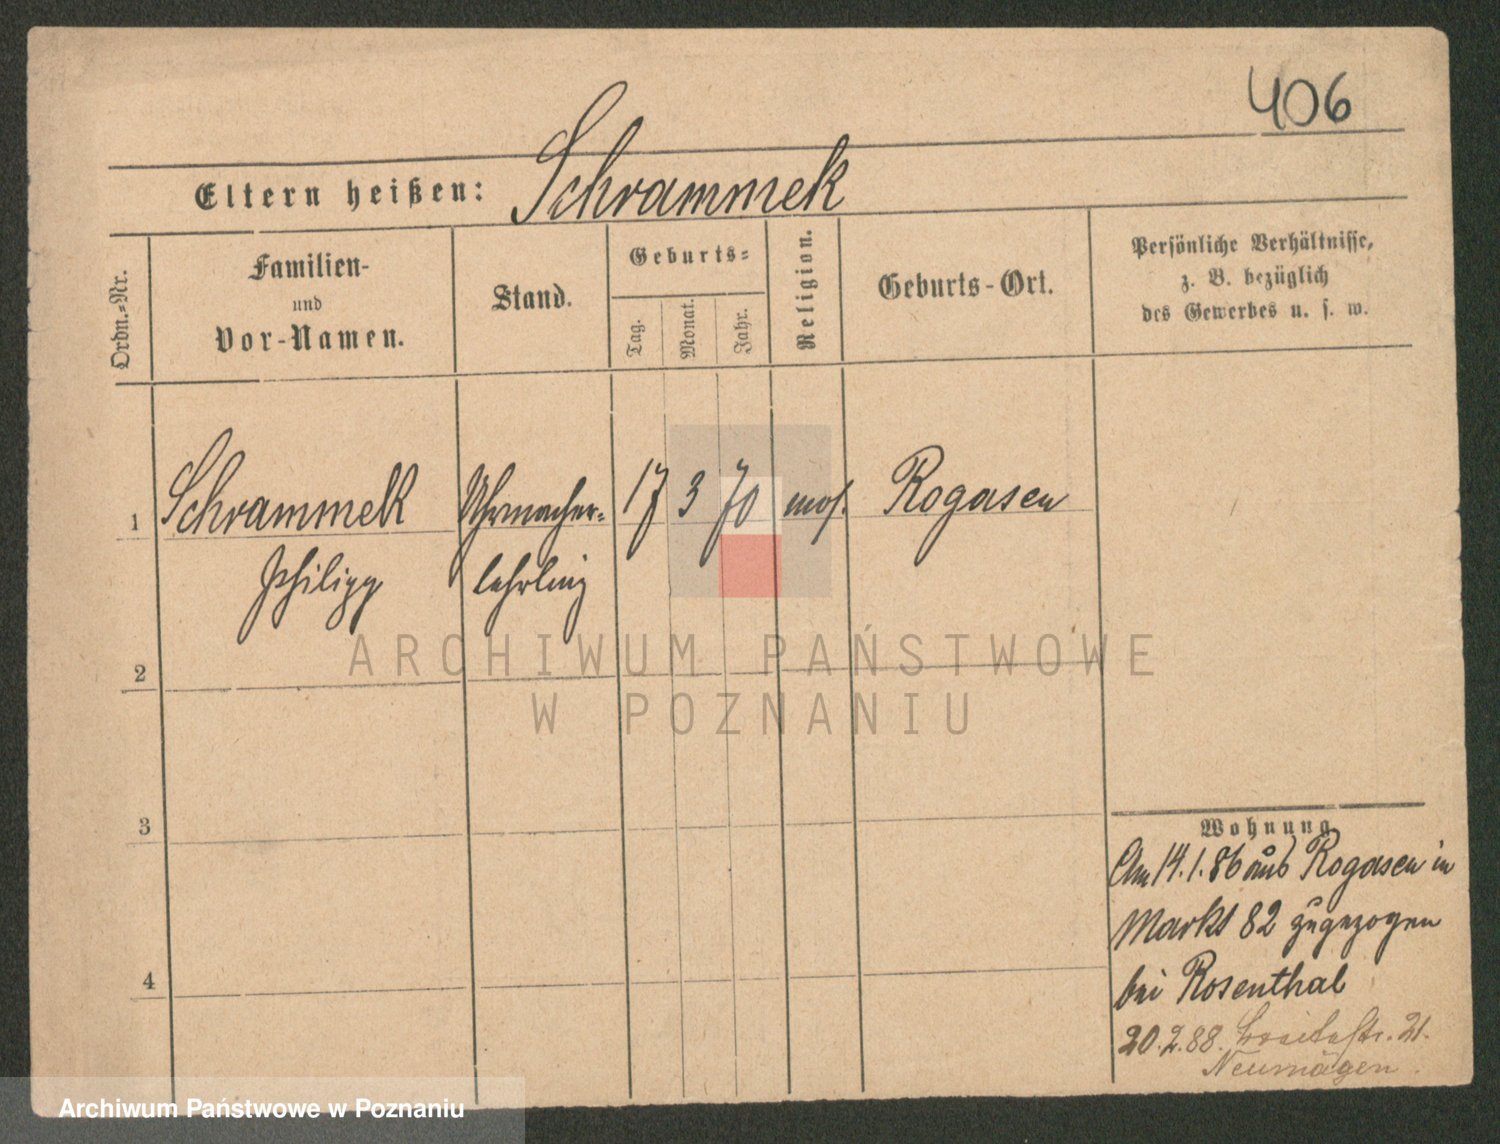 406
Eltern heißen: Schrammek
Ordn.-Nr.
Familien-
und
Vor-Namen.
Stand.
Geburts-
Tag.
Monat.
Jahr.
Religion.
Geburts-Ort.
Persönliche Verhältnisse,
z. B. bezüglich
des Gewerbes u. s. w.
1 Schrammek Uhrmacher- 17 3 70 mos. Rogasen
Philipp lehrling
2
3
4
Wohnung
Am 14.1.86 aus Rogasen in
Markt 82 zugezogen
bei Rosenthal
20.2.88. Breitestr. 21.
ARCHIWUM PAŃSTWOWE
W POZNANIU
Archiwum Państwowe w Poznaniu